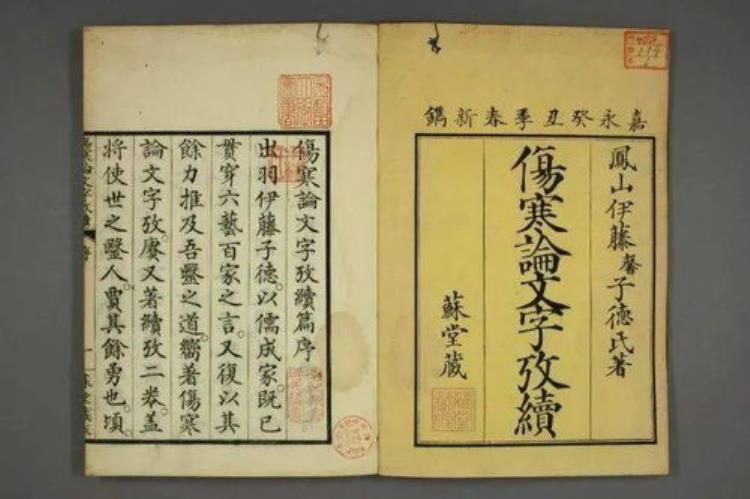 嘉永癸丑季春新鐫
鳳山伊藤馨子德氏著
傷寒論文字攷續
蘇堂藏
傷寒論文字攷續篇序
出羽伊藤子德。以儒成家。既已
貫穿六藝百家之言。又復以其
餘力推及吾毉之道。嚮著傷寒
論文字攷。賡又著續攷二卷。蓋
將使世之毉人。賈其餘勇也。頃